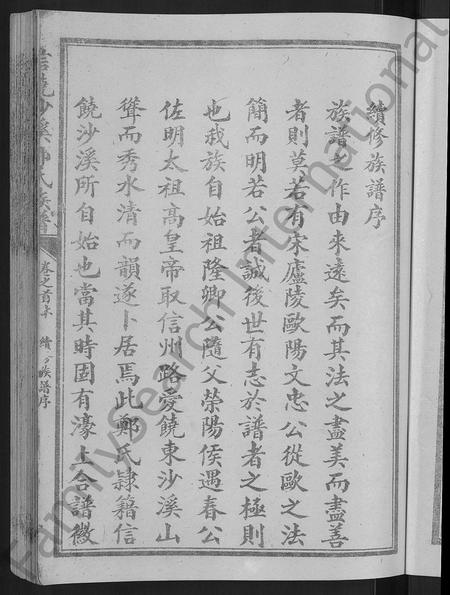 續修族譜序
族譜之作由來遠矣而其法之盡美而盡善
者則莫若有宋廬陵歐陽文忠公從歐之法
簡而明若公者誠後世有志於譜者之極則
也我族自始祖隆卿公隨父榮陽侯遇春公
佐明太祖高皇帝取信州路愛饒東沙溪山
聳而秀水清而韻遂卜居焉此鄭氏隸籍信
饒沙溪所自始也當其時固有濠上合譜徽
信饒沙溪鄭氏族譜
卷之首 續修族譜序
FamilySearch International